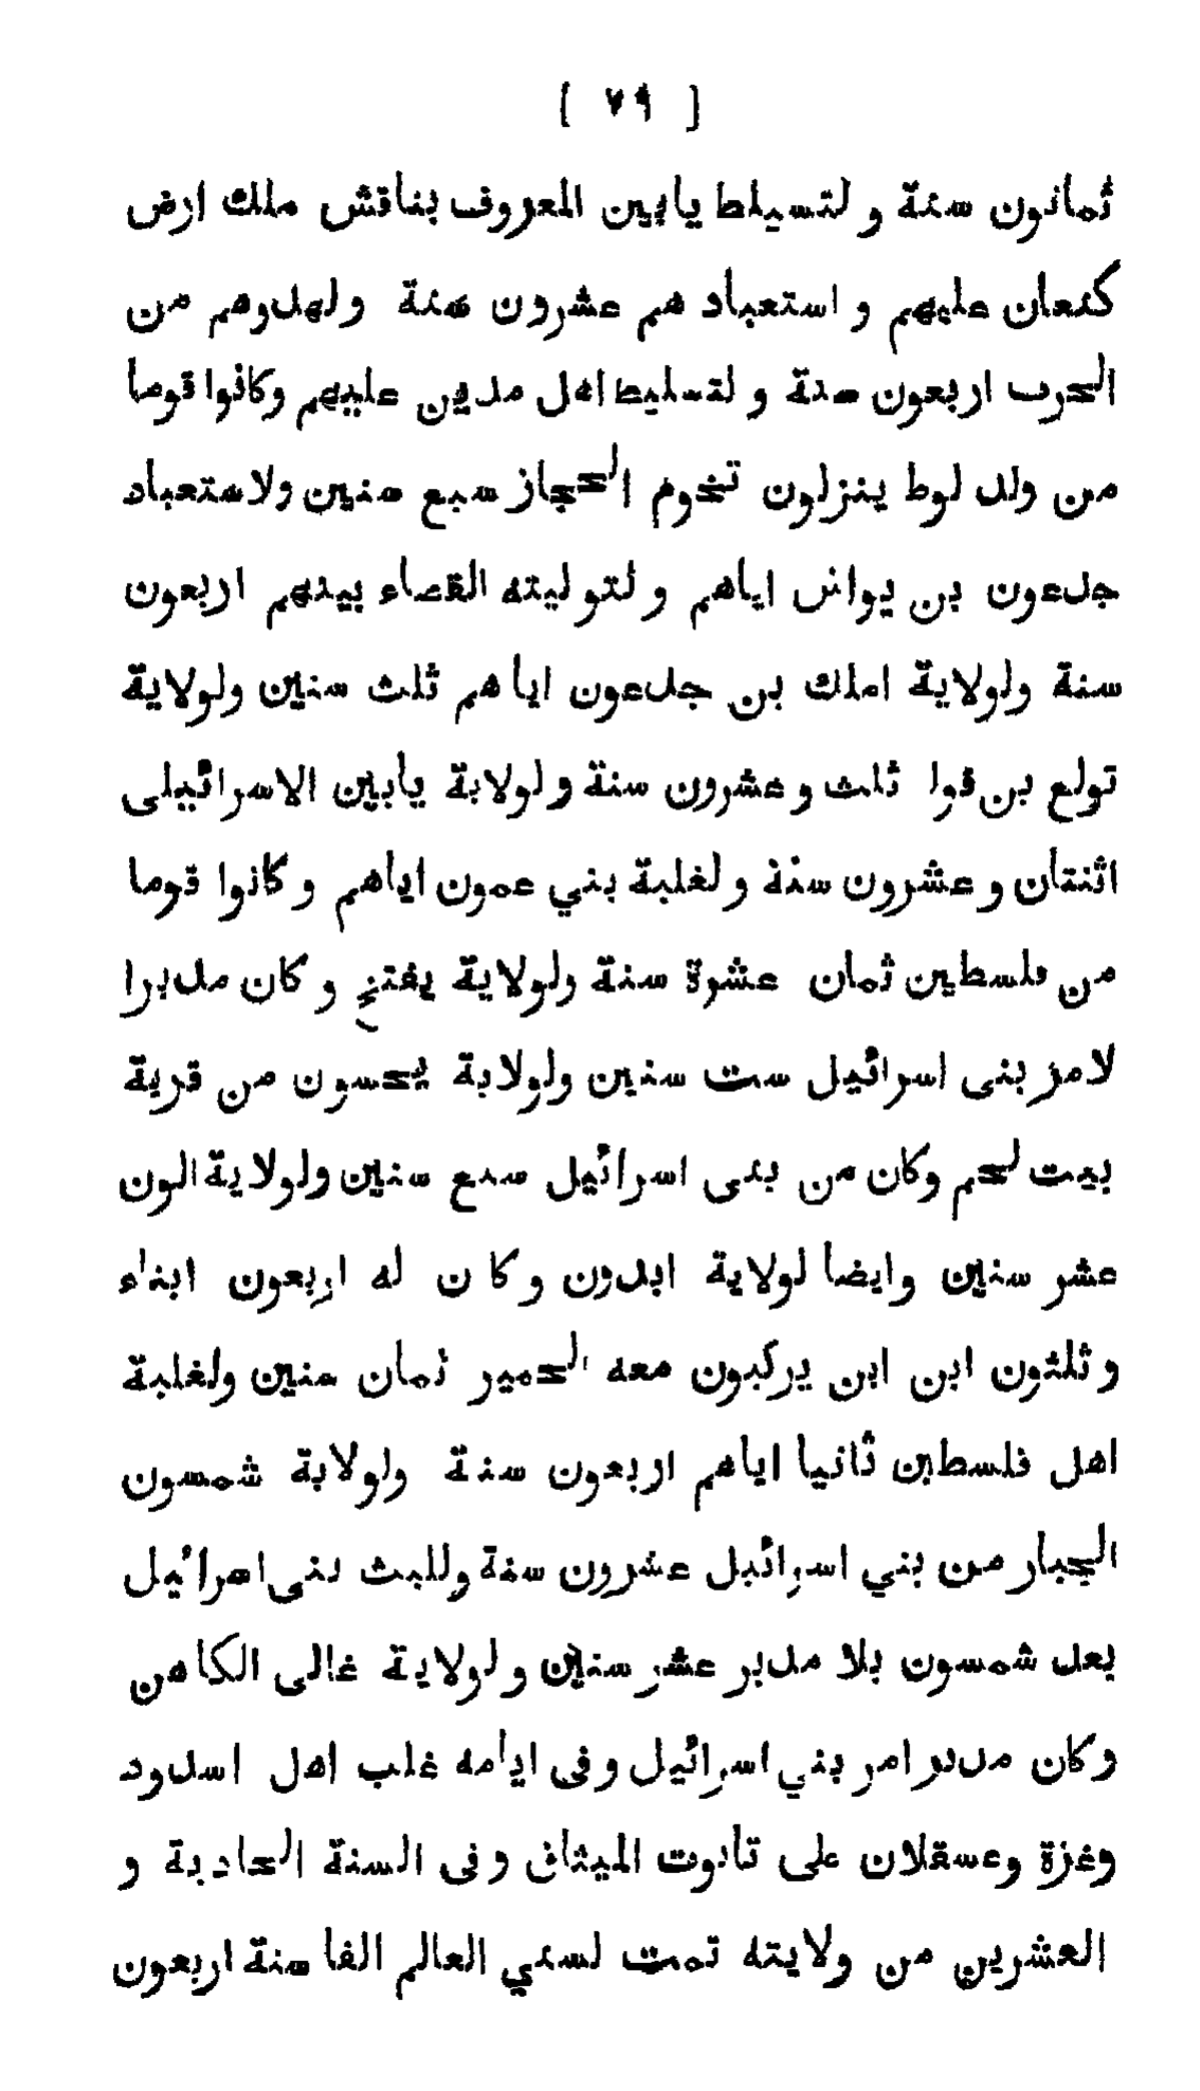 [ ٧٩ ]
ثمانون سنة و لتسيلط يابين المعروف بناقش ملك ارض
كنعان عليهم و استعباد هم عشرون سنة ولهدوهم من
الحرب اربعون سنة و لتسليط اهل مدين عليهم وكانوا قوما
من ولد لوط ينزلون تخوم الحجاز سبع سنين ولاستعباد
جدعون بن يوانس اياهم و لتوليته القضاء بينهم اربعون
سنة ولولاية املك بن جدعون ايا هم ثلث سنين ولولاية
تولع بن فوا ثلث و عشرون سنة و لولاية يابين الاسرائيلى
اثنتان و عشرون سنة و لغلبة بني عمون اياهم و كانوا قوما
من فلسطين ثمان عشرة سنة ولولاية يفتح و كان مدبرا
لامر بنى اسرائيل ست سنين ولولاية يحسون من قرية
بيت لحم وكان من بنى اسرائيل سبع سنين ولولاية الون
عشر سنين وايضا لولاية ابدون و كا ن له اربعون ابناء
و ثلثون ابن ابن يركبون معه الحمير ثمان سنين ولغلبة
اهل فلسطين ثانيا اياهم اربعون سنة ولولاية شمسون
الجبار من بني اسرائيل عشرون سنة وللبث بنى اسرائيل
بعد شمسون بلا مدبر عشر سنين و لولاية غالى الكاهن
و كان مدبر امر بني اسرائيل و فى ايامه غلب اهل اسدود
وغزة وعسقلان على تابوت الميثاق و فى السنة الحادية و
العشرين من ولايته تمت لسني العالم الفا سنة اربعون